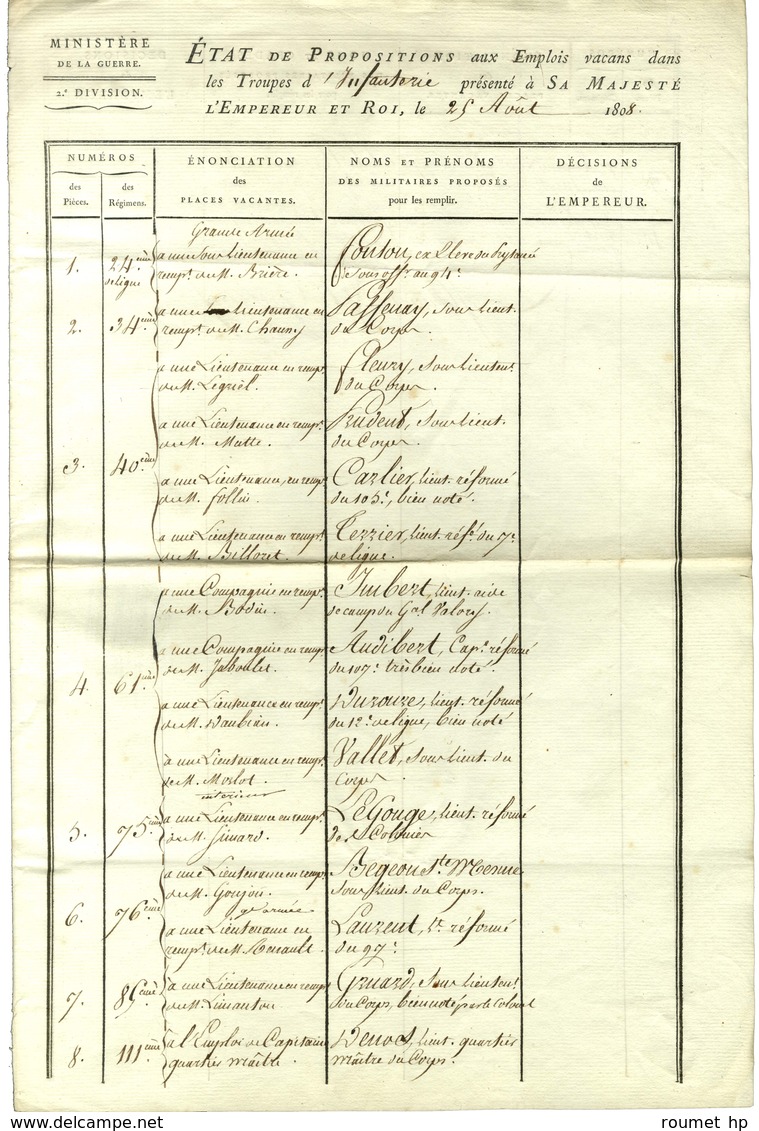 MINISTÈRE
DE LA GUERRE.
2.e DIVISION.
ÉTAT DE PROPOSITIONS aux Emplois vacans dans
les Troupes d'Infanterie présenté à SA MAJESTÉ
L'EMPEREUR ET ROI, le 25 Août 1808.
NUMÉROS
des Pièces.
des Régimens.
ÉNONCIATION
des
PLACES VACANTES.
NOMS ET PRÉNOMS
DES MILITAIRES PROPOSÉS
pour les remplir.
DÉCISIONS
de
L'EMPEREUR.
Grande Armée
1. 24eme de ligne
a une Sous Lieutenance en
rempt. de M. Brière.
Couton, ex Eleve du Prytanée
Sous offr. au 94e.
2. 34eme
a une lieutenance en
rempt. de M. Chauny
Passenay, Sous lieut.
du Corps.
3. 40eme
a une Lieutenance en rempt.
de M. Legriel.
Fleury, Sous lieutent.
du Corps.
a une Lieutenance en rempt.
de M. Mutte.
Prudent, Sous lieut.
du Corps.
a une Lieutenance, en rempt.
de M. follin.
Carlier, lieut. réformé
du 105e, bien noté.
a une Lieutenance en rempt.
de M. Billoret.
Terrier, lieut. réfé. du 7e
de ligne.
4. 61eme
a une Compagnie en rempt.
de M. Bodin.
Imbert, lieut. aide
de camp du Gal. Valory.
a une Compagnie en rempt
de M. Jaboulet.
Audibert, Cape. réformé
du 107e très bien noté.
a une Lieutenance en rempt.
de M. Daubian.
Duzouze, lieut. réformé
du 12e de ligne, bien noté
à une Lieutenance en rempt.
de M. Morlot.
Vallet, Sous lieut. du
Corps.
interieur
5. 75eme
a une Lieutenance en rempt.
de M. Simard.
LeGouge, lieut. réformé
des Colonies
6. 76eme
a une Lieutenance en rempt.
de M. Goujon.
Begeon Ste. Mesme
Sous lieut. du Corps.
gde armée
a une Lieutenance en
rempt. de M. Renault.
Laurent, Lt. réformé
du 97e.
7. 85eme
à une Lieutenance en rempt
de M. Limanton
Gruard, Sous lieutent.
du Corps, bien noté par le Colonel
8. 111eme
a l'Emploi de Capitaine
quartier maître
Denoes, lieut. quartier
maître du Corps.
roumet hp